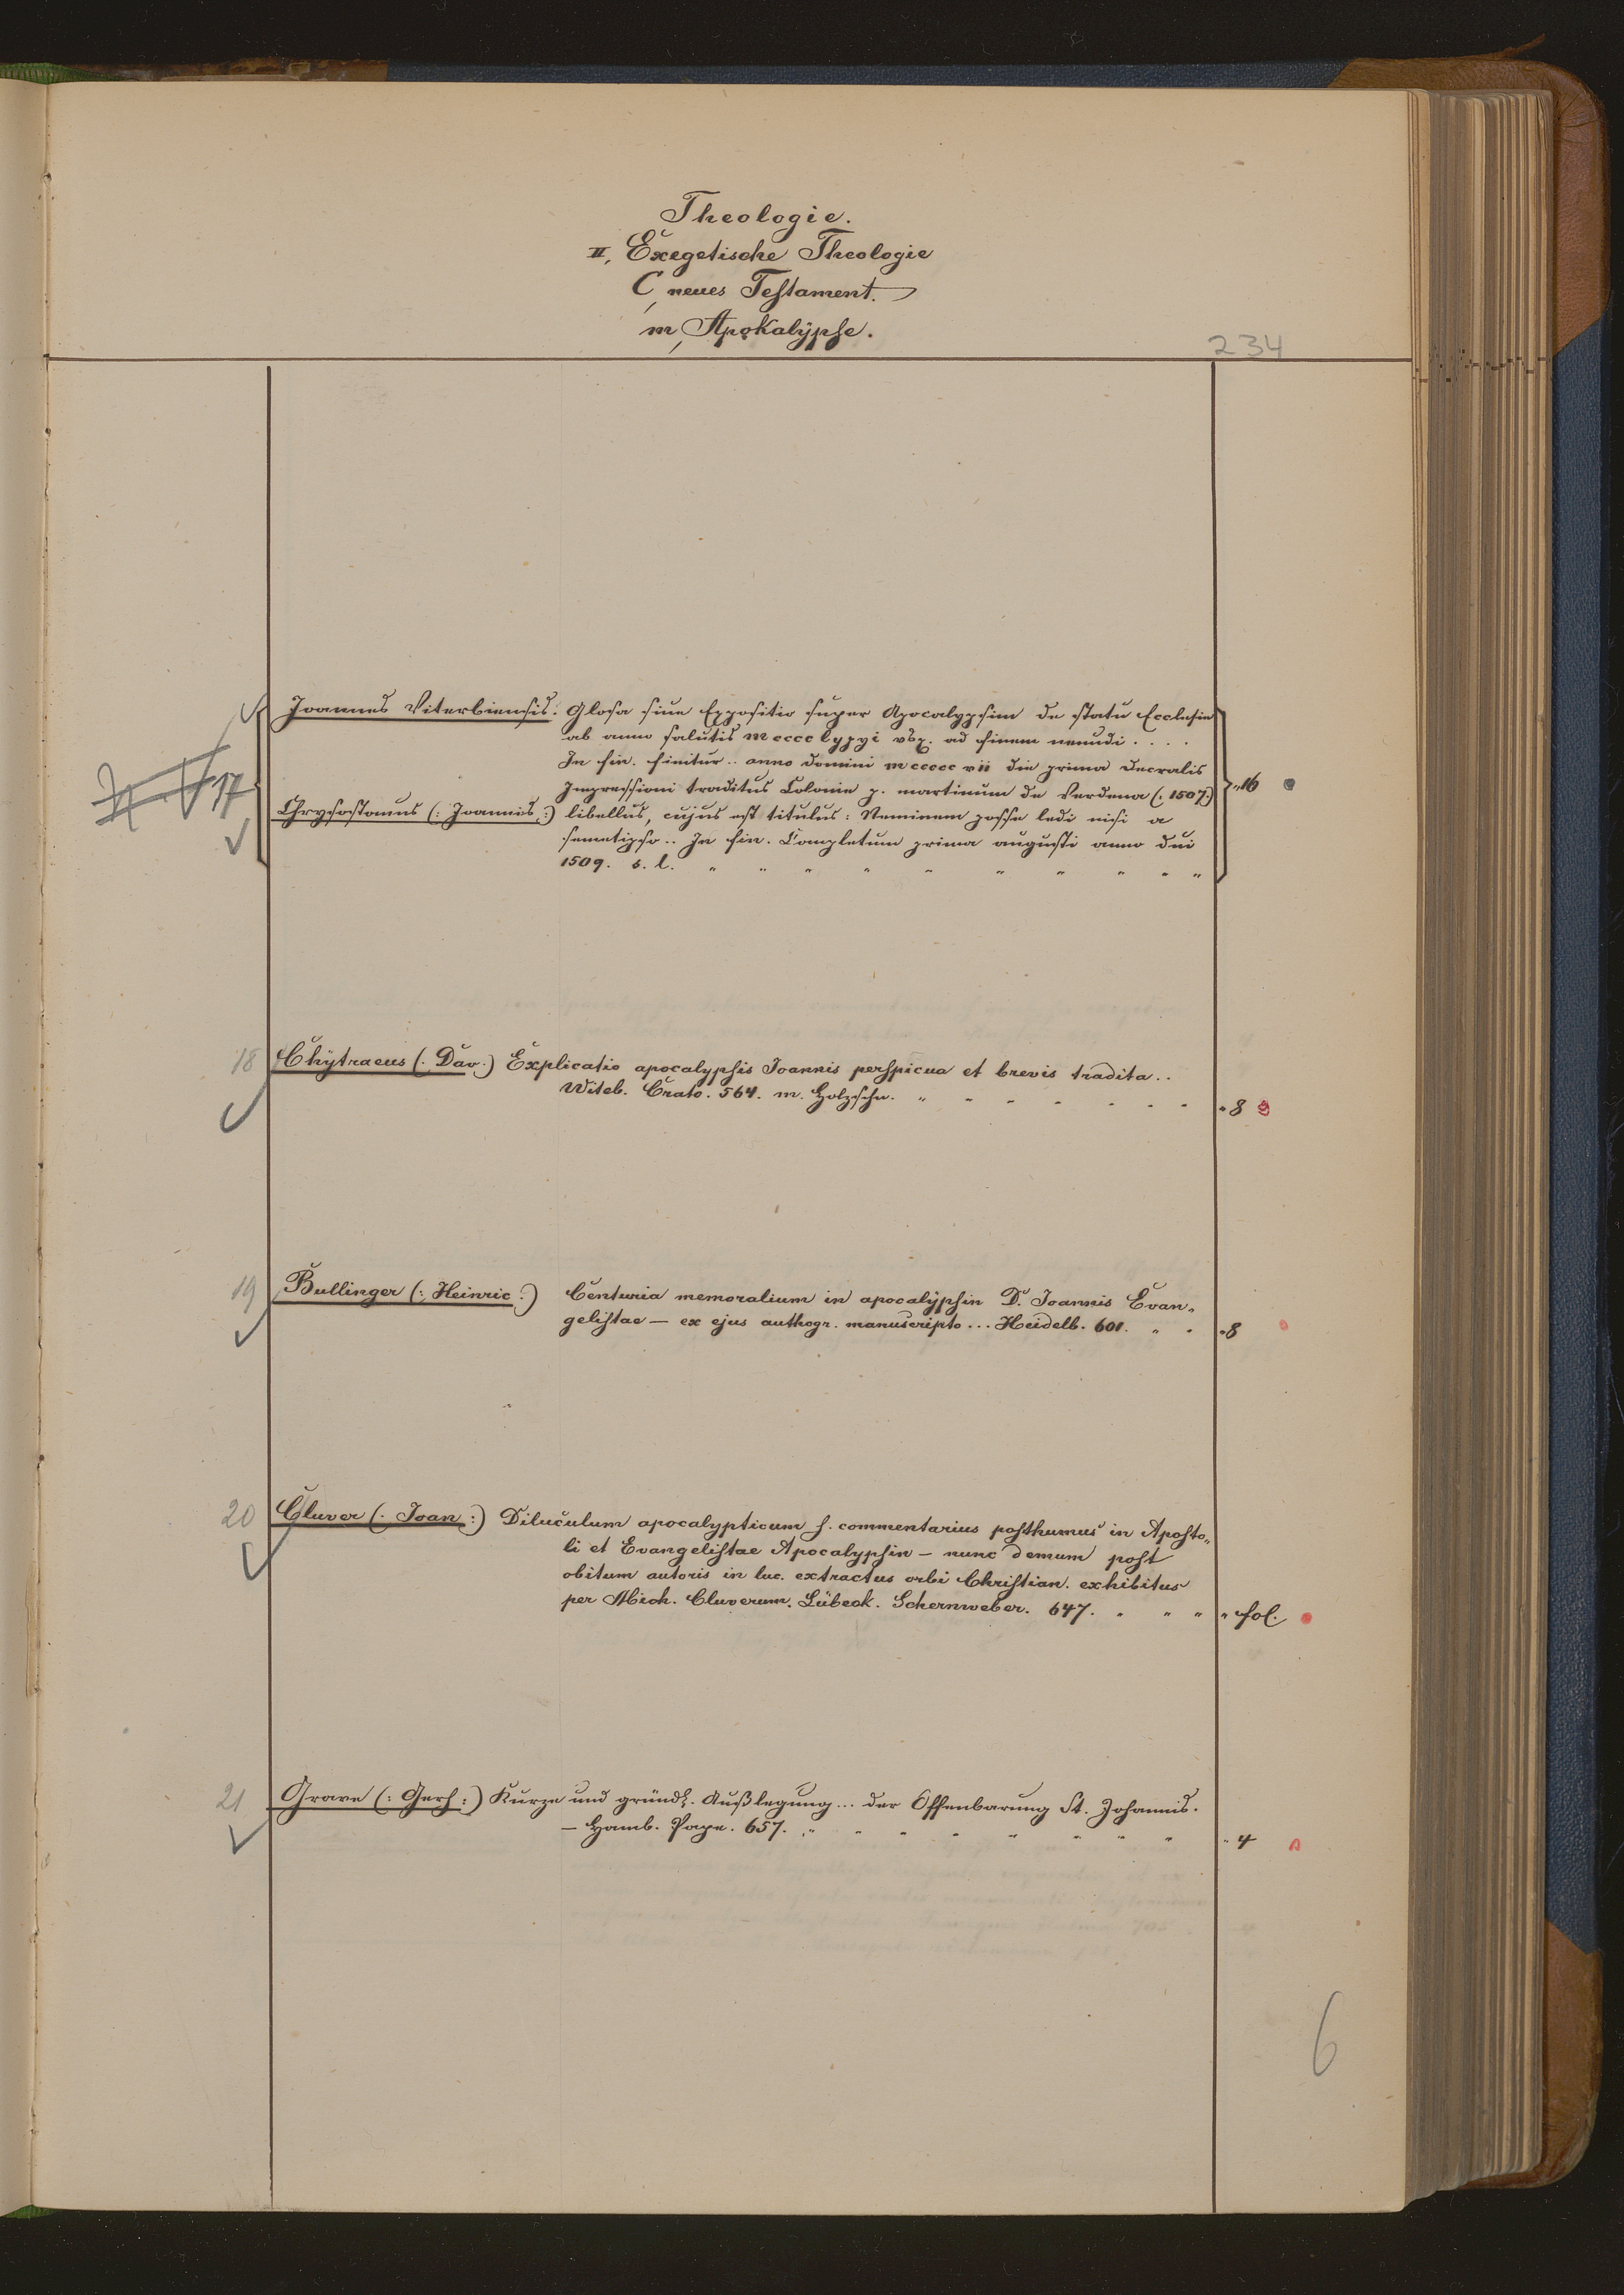 Theologie.
II, Exegetische Theologie
C, neues Testament.
m, Apokalypse.
234
Joannes Viterbiensis. Glosa siue Expositio super Apocalypsim de statu Ecclesie
ab anno salutis mcccc lxxxi vsq. ad finem mundi . . . .
In fin. finitur .. anno domini mccccc vii die prima
Impressioni traditus Colonie p. martinum de Verdena (: 1507.)
17
16
Chrysostomus (: Joannis :) libellus, cujus est titulus: Neminem posse ledi nisi a
semetipso .. In fin. Completum prima augusti anno dni
1509. s. l.
18 Chytraeus (: Dav.) Explicatio apocalypsis Joannis perspicua et brevis tradita ..
Witeb. Crato. 564. m. Holzschn. 8
19 Bullinger (: Heinric :) Centuria memoralium in apocalypsin D. Joannis Evan-
gelistae — ex ejus authogr. manuscripto ... Heidelb. 601. 8
20 Cluver (: Joan :) Diluculum apocalypticum s. commentarius posthumus in Aposto-
li et Evangelistae Apocalypsin — nunc demum post
obitum autoris in luc. extractus orbi Christian. exhibitus
per Mich. Cluverum. Lübeck. Schernweber. 647. fol.
21 Grave (: Gerh :) Kurze und gründl. Außlegung ... der Offenbarung St. Johannis.
— Hamb. Pape. 657. 4
6